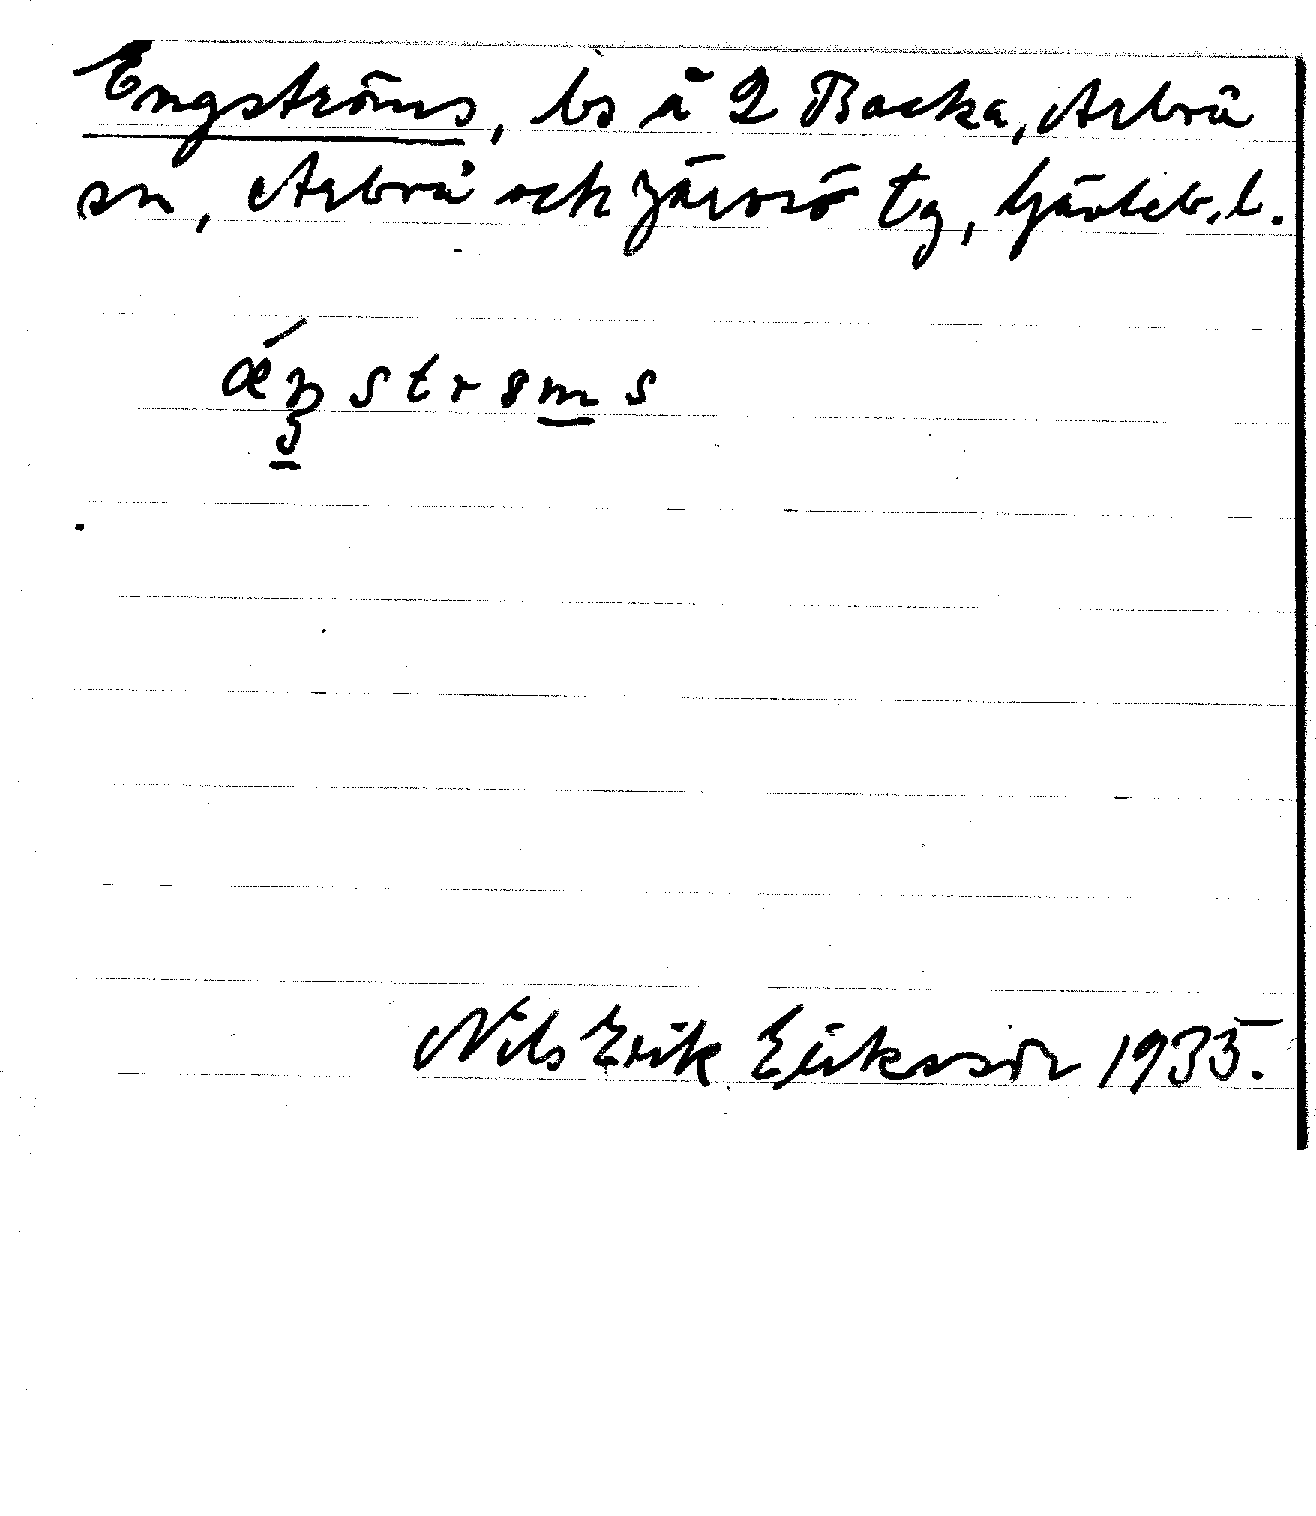 Engströms, bs å 2 Backa, Arbrå
sn, Arbrå och Järvsö tg, Gävleb. l.
ǽŋstrɞms
Nils Erik Eriksson 1935.